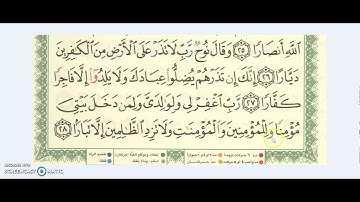 اللَّهِ أَنصَارًا ٢٥ وَقَالَ نُوحٌ رَّبِّ لَا تَذَرْ عَلَى الْأَرْضِ مِنَ الْكَافِرِينَ
دَيَّارًا ٢٦ إِنَّكَ إِن تَذَرْهُمْ يُضِلُّوا عِبَادَكَ وَلَا يَلِدُوا إِلَّا فَاجِرًا
كَفَّارًا ٢٧ رَّبِّ اغْفِرْ لِي وَلِوَالِدَيَّ وَلِمَن دَخَلَ بَيْتِيَ
مُؤْمِنًا وَلِلْمُؤْمِنِينَ وَالْمُؤْمِنَاتِ وَلَا تَزِدِ الظَّالِمِينَ إِلَّا تَبَارًا ٢٨
SCREENCAST MATIC